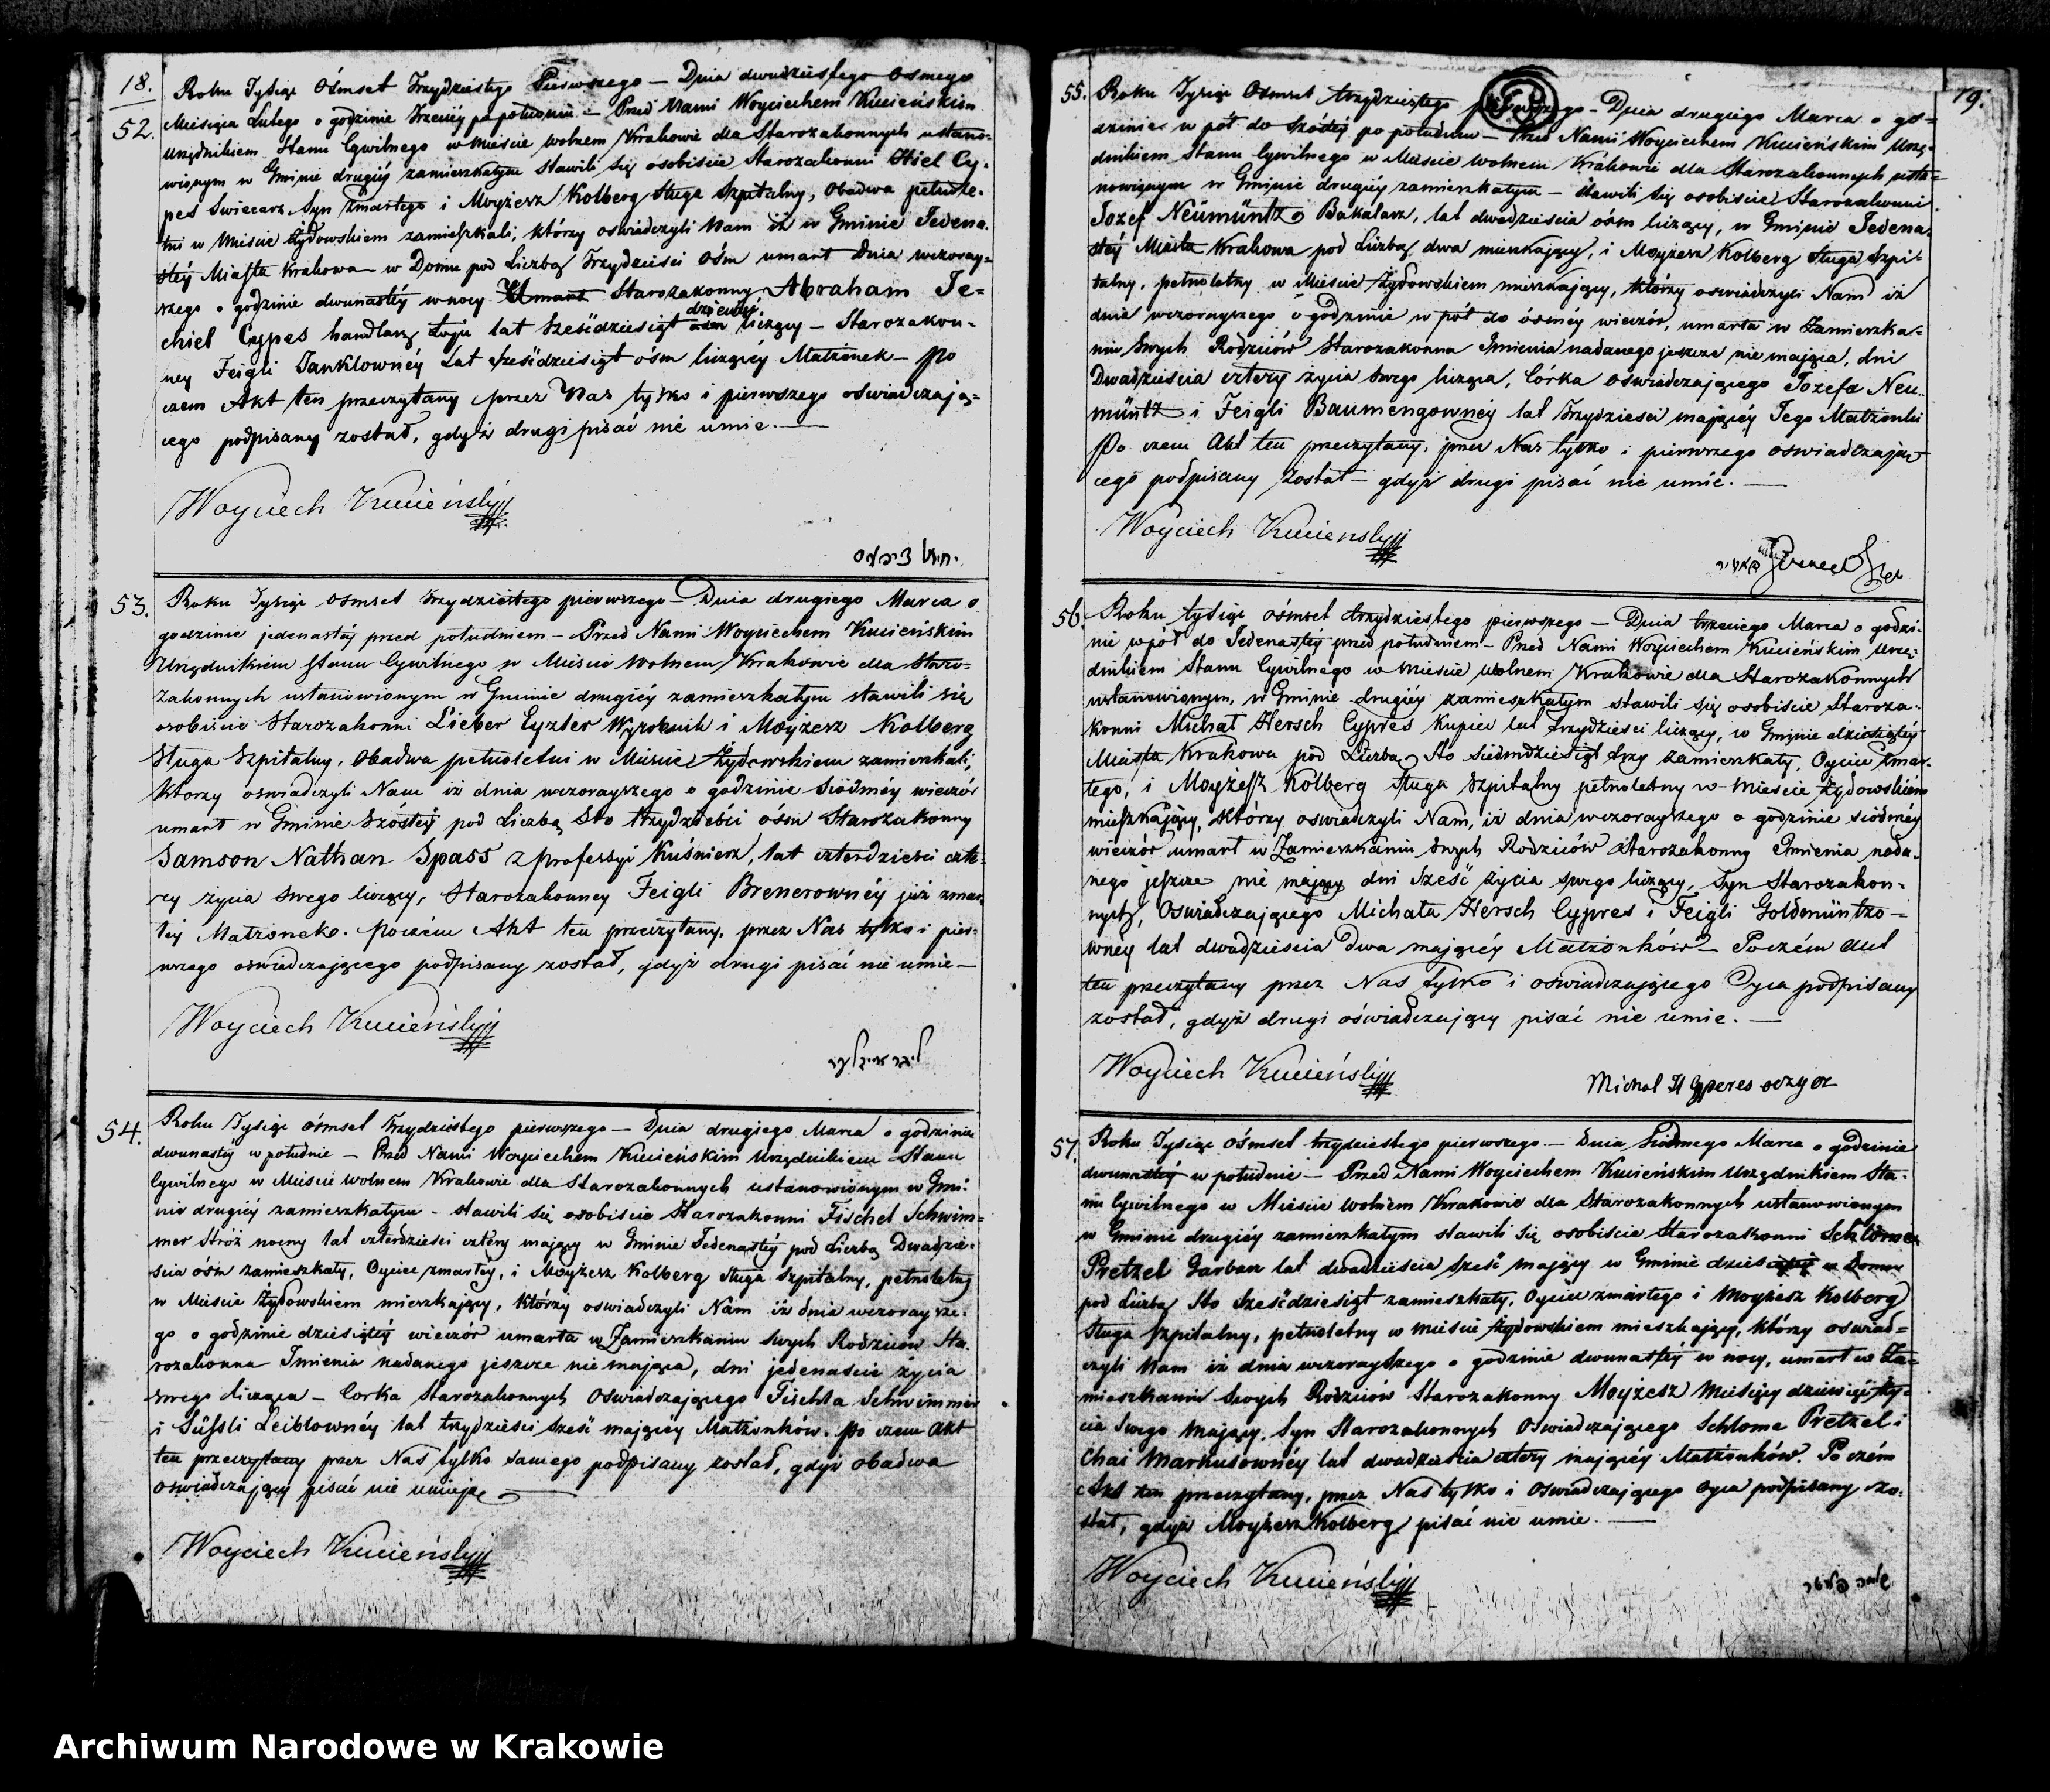 18.
52.
Roku Tysiąc Ośmset Trzydziestego Pierwszego – Dnia dwudziestego osmego
Miesiąca Lutego o godzinie Trzeciéy po południu – Przed Nami Woyciechem Kucieńskim
Urzędnikiem Stanu Cywilnego w Mieście wolnem Krakowie dla Starozakonnych ustano-
wionym w Gminie drugiéy zamieszkałym stawili się osobiście Starozakonni Hiel Cy-
pes Swiecarz Syn zmarłego i Moyżesz Kolberg Sługa Szpitalny, Obadwa pełnole-
tni w Mieście żydowskiem zamieszkali, którzy oswiadczyli Nam iż w Gminie Jedena-
stéy Miasta Krakowa w Domu pod Liczbą Trzydzieści Ośm umarł Dnia wczoray-
szego o godzinie dwunastéy w nocy Umarł Starozakonny Abraham Je-
dziewięć
chiel Cypes handlarz Łoju lat Sześćdziesiąt ośm liczący – Starozakon-
ney Feigli Janklownéy Lat Sześćdziesiąt ośm liczącéy Małżonek – Po
czem Akt ten przeczytany przez Nas tylko i pierwszego oświadczają-
cego podpisany został, gdyż drugi pisać nie umie.
Woyciech Kucieński
יחיאל ציפעס
53.
Roku Tysiąc Osmset Trzydziestego pierwszego – Dnia drugiego Marca o
godzinie jedenastéy przed południem – Przed Nami Woyciechem Kucieńskim
Urzędnikiem Stanu Cywilnego w Mieście wolnem Krakowie dla Staro-
zakonnych ustanowionym w Gminie drugiéy zamieszkałym stawili się
osobiście Starozakonni Lieber Eyzler Wyrobnik i Moyżesz Kolberg
Sługa Szpitalny, Obadwa pełnoletni w Mieście Żydowskiem zamieszkali,
którzy oswiadczyli Nam iż dnia wczorayszego o godzinie Siódméy wieczór
umarł w Gminie Szóstéy pod Liczbą Sto trzydzieści ośm Starozakonny
Samson Nathan Spass z professyi Kuśnierz, lat czterdzieści czte-
ry życia swego liczący, Starozakonney Feigli Brenerownéy już zmar-
łéy Małżonek. Poczém Akt ten przeczytany, przez Nas tylko i pier-
wszego oswiadczającego podpisany został, gdyż drugi pisać nie umie –
Woyciech Kucieński
ליבר אייזלער
54.
Roku Tysiąc ośmset Trzydziestego pierwszego – Dnia drugiego Marca o godzinie
dwunastéy w południe – Przed Nami Woyciechem Kucieńskim Urzędnikiem Stanu
Cywilnego w Mieście wolnem Krakowie dla Starozakonnych ustanowionym w Gmi-
nie drugiéy zamieszkałym – stawili się osobiście Starozakonni Fischel Schwim-
mer Stróż nocny lat czterdzieści cztéry mający w Gminie Jedenastéy pod Liczbą Dwadzie-
ścia ośm zamieszkały, Oyciec zmarłéy, i Moyżesz Kolberg Sługa Szpitalny, pełnoletny
w Mieście Żydowskiem mieszkający, którzy oswiadczyli Nam iż dnia wczoraysze-
go o godzinie dziesiątéy wieczór umarła w Zamieszkaniu Swych Rodziców Sta-
rozakonna Imienia nadanego jeszcze nie mająca, dni jedenaście życia
swego licząca – Corka Starozakonnych Oswiadczającego Fischla Schwimmer
i Süssli Leiblownéy lat trzydzieści sześć mającéy Małżonków. Po czem Akt
ten przeczytany przez Nas tylko samego podpisany został, gdyż obadwa
oswiadczający pisać nie umieją
Woyciech Kucieński
19.
55.
Roku Tysiąc Osmset trzydziestego pierwszego – Dnia drugiego Marca o go-
dzinie w pół do Szóstéy po południu – Przed Nami Woyciechem Kucieńskim Urzę-
dnikiem Stanu Cywilnego w Mieście wolnem Krakowie dla Starozakonnych usta-
nowionym w Gminie drugiéy zamieszkałym – stawili się osobiście Starozakonni
Jozef Neümüntz Bakałarz, lat dwadzieścia ośm liczący, w Gminie Jedena-
stéy Miasta Krakowa pod Liczbą dwa mieszkający, i Moyżesz Kolberg Sługa Szpi-
talny, pełnoletny w Mieście Żydowskiem mieszkający, którzy oswiadczyli Nam iż
dnia wczorayszego o godzinie w pół do ósméy wieczór, umarła w Zamieszka-
niu Swych Rodziców Starozakonna Imienia nadanego jeszcze nie mająca, dni
Dwadzieścia cztery życia swego licząca, Córka oswiadczającego Józefa Neu-
müntz i Feigli Baumengownéy lat Trzydzieści mającéy Jego Małżonki
Po czem Akt ten przeczytany, przez Nas tylko i pierwszego oswiadczają-
cego podpisany został – gdyż drugi pisać nie umié.
Woyciech Kucieński
56.
Roku tysiąc ośmset trzydziestego pierwszego – Dnia trzeciego Marca o godzi-
nie wpół do Jedenastéy przed południem – Przed Nami Woyciechem Kucieńskim Urzę-
dnikiem Stanu Cywilnego w Mieście wolnem Krakowie dla Starozakonnych
ustanowionym, w Gminie drugiéy zamieszkałym stawili się osobiście Staroza-
konni Michał Hersch Cypres Kupiec lat trzydzieści liczący, w Gminie dziesiątéy
Miasta Krakowa pod Liczbą Sto Siedmdziesiąt trzy zamieszkały, Oyciec zmar-
łego, i Moyżesz Kolberg Sługa Szpitalny pełnoletny w Mieście żydowskiem
mieszkający, którzy oswiadczyli Nam, iż dnia wczorayszego o godzinie siódméy
wieczór umarł w Zamieszkaniu Swych Rodziców Starozakonny Imienia nada-
nego jeszcze nie mający dni Sześć życia swego liczący, Syn Starozakon-
nych, Oswiadczającego Michała Hersch Cypres i Feigli Goldmüntzo-
wnéy lat dwadzieścia dwa mającéy Małżonków – Poczém Akt
ten przeczytany przez Nas tylko i oswiadczającego Oyca podpisany
został, gdyż drugi oświadczający pisać nie umie.
Woyciech Kucieński
Michal H Cyperes oczyoc
57.
Roku Tysiąc Ośmset trzydziestego pierwszego – Dnia Siódmego Marca o godzinie
dwunastéy w południe – Przed Nami Woyciechem Kucieńskim Urzędnikiem Sta-
nu Cywilnego w Mieście wolnem Krakowie dla Starozakonnych ustanowionym
w Gminie drugiéy zamieszkałym stawili się osobiście Starozakonni Schlome
Pretzel Garbarz lat dwadzieścia sześć mający w Gminie dziesiątéy w Domu
pod Liczbą Sto Sześćdziesiąt zamieszkały, Oyciec zmarłego i Moyżesz Kolberg
Sługa Szpitalny, pełnoletny w Mieście żydowskiem mieszkający, którzy oswiad-
czyli Nam iż dnia wczorayszego o godzinie dwunastéy w nocy, umarł w Za-
mieszkaniu Swoych Rodziców Starozakonny Moyżesz Miesięcy dziewięć ży-
cia Swego mający, Syn Starozakonnych Oswiadczającego Schlome Pretzel i
Chai Markusownéy lat dwadzieścia cztery mającéy Małżonków. Po czém
Akt ten przeczytany, przez Nas tylko i Oswiadczającego Oyca podpisany zo-
stał, gdyż Moyżesz Kolberg pisać nie umie.
Woyciech Kucieński
Archiwum Narodowe w Krakowie